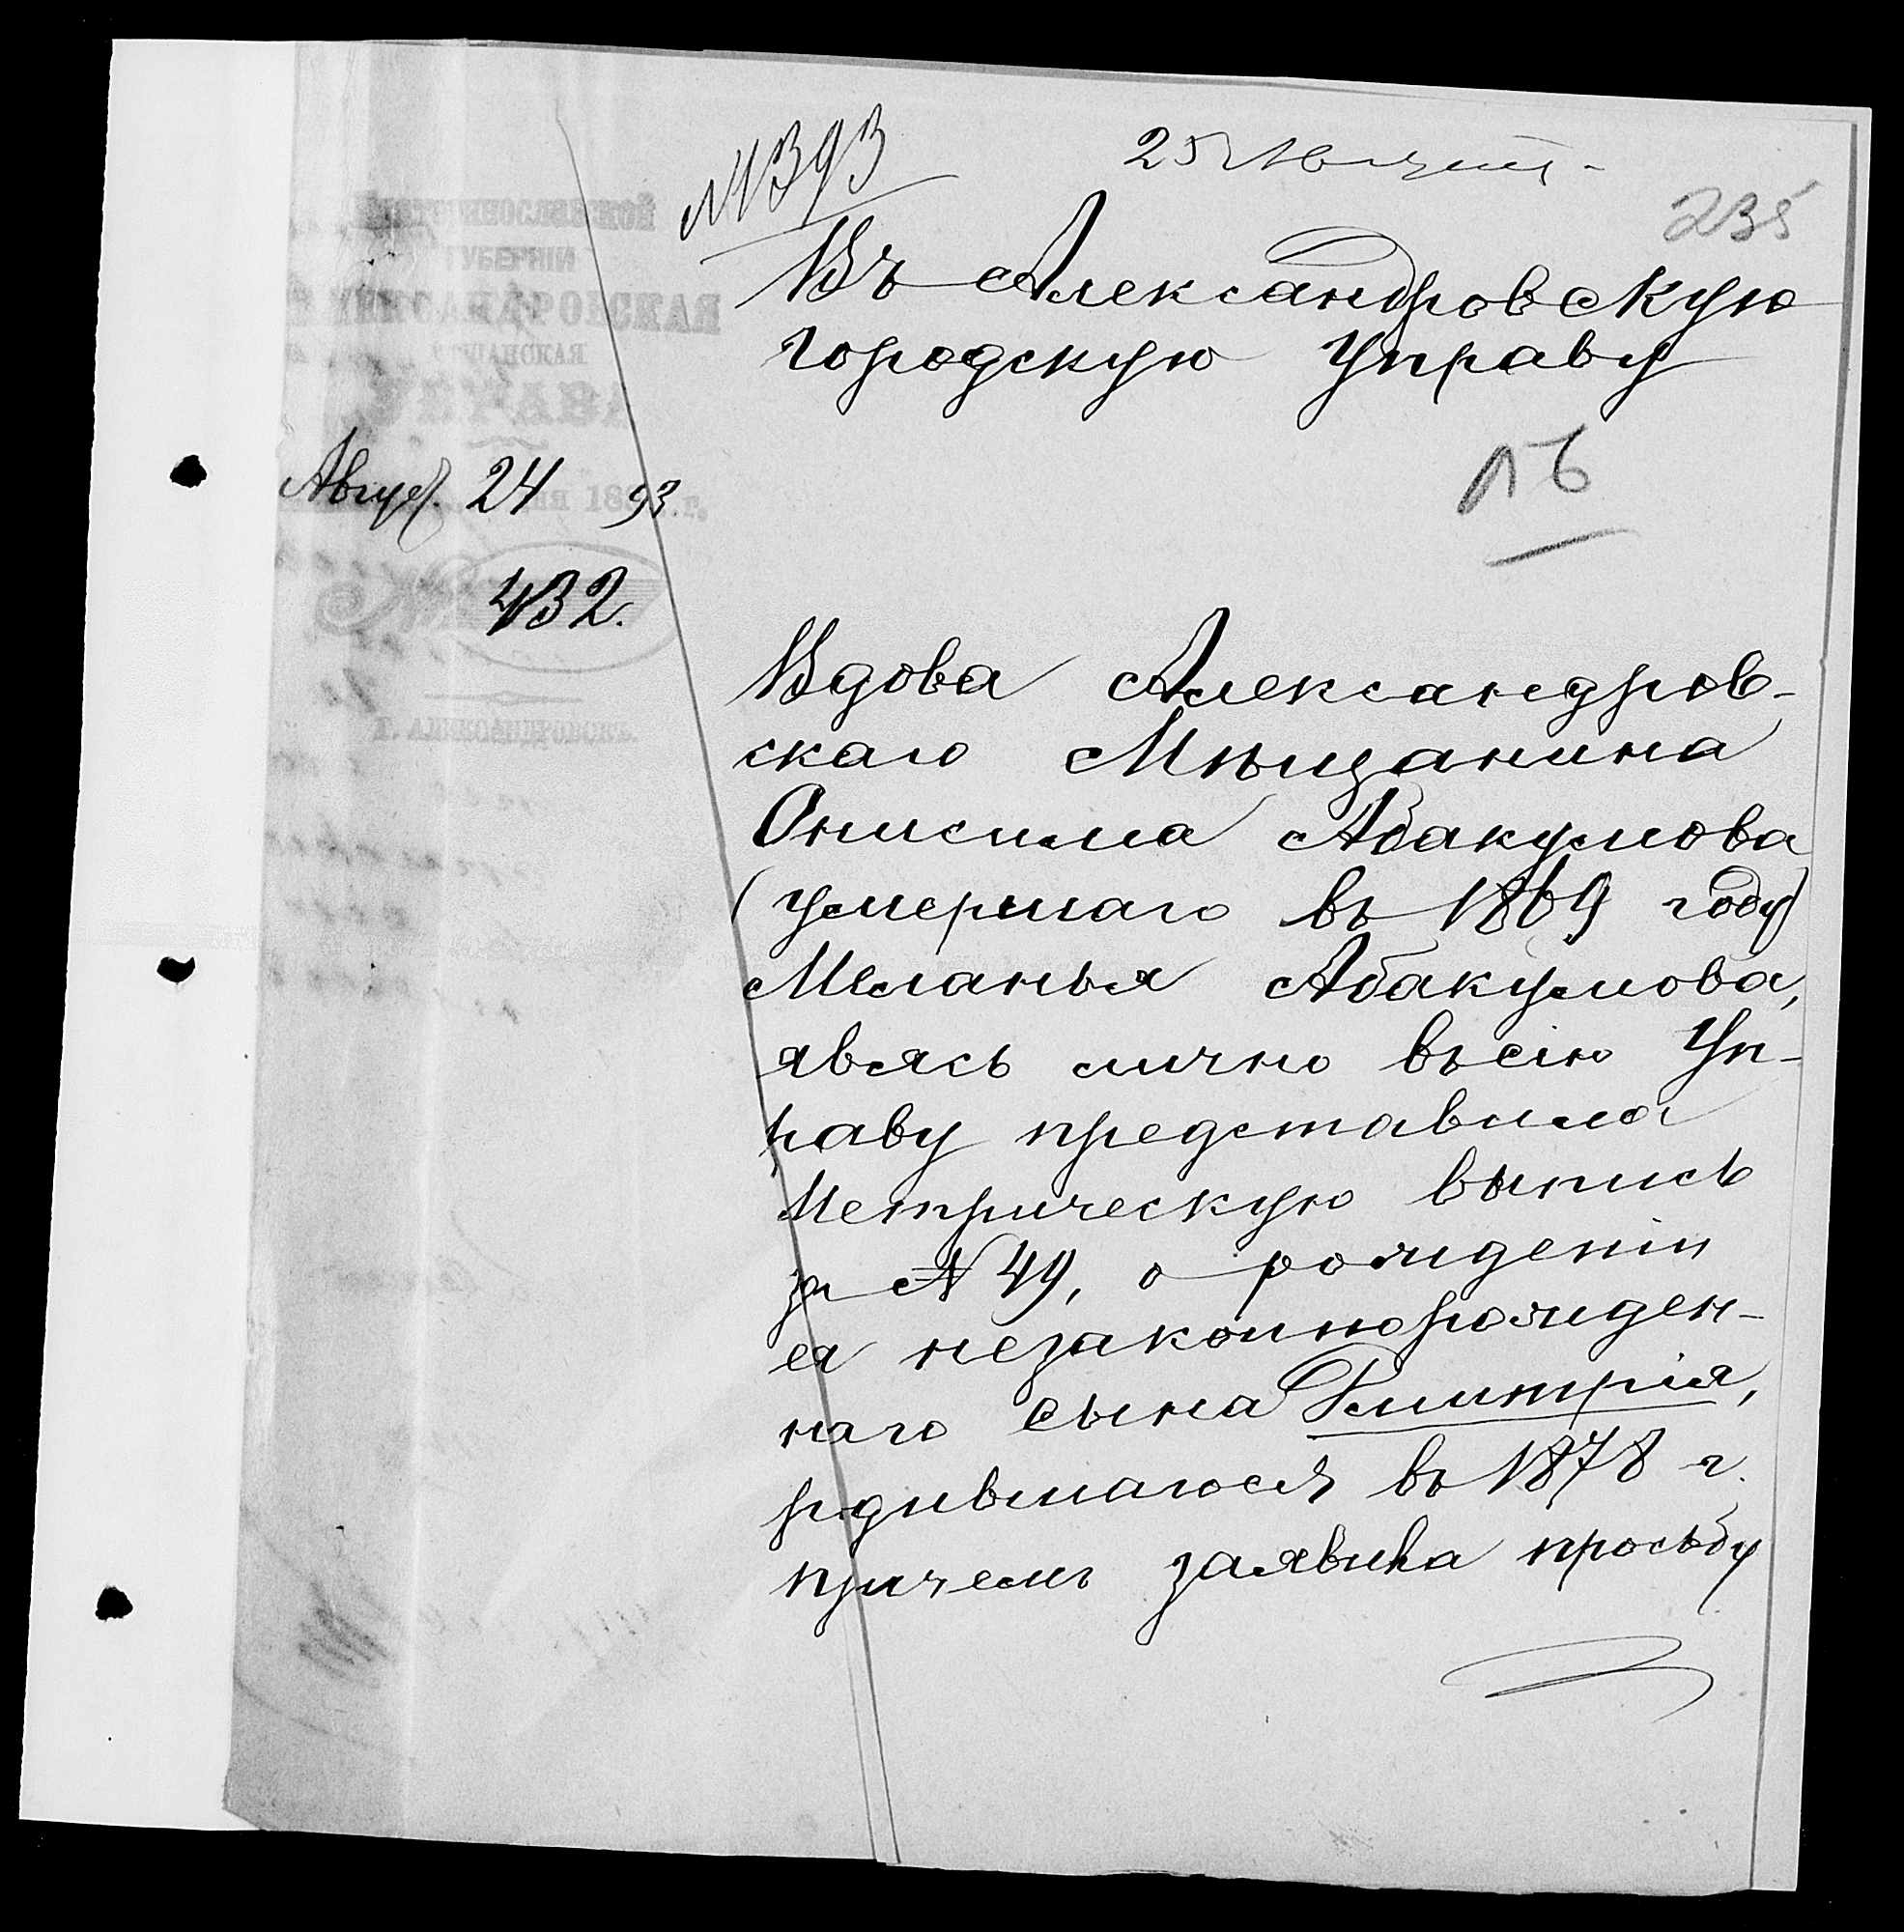 № 1393
25 Августа
235
ЕКАТЕРИНОСЛАВСКОЙ
ГУБЕРНІИ
АЛЕКСАНДРОВСКАЯ
МѢЩАНСКАЯ
УПРАВА
Август. 24 дня 1893 г.
№ 432.
Г. АЛЕКСАНДРОВСКЪ.
Въ Александровскую
городскую Управу
Вдова Александров-
скаго Мѣщанина
Онисима Абакумова
(умершаго въ 1869 году)
Меланья Абакумова,
явясь лично въ сію Уп-
раву представила
Метрическую выпись
за № 49, о рожденіи
ея незаконнорожден-
наго сына Дмитрія,
родившагося въ 1878 г.
причемъ заявила просьбу